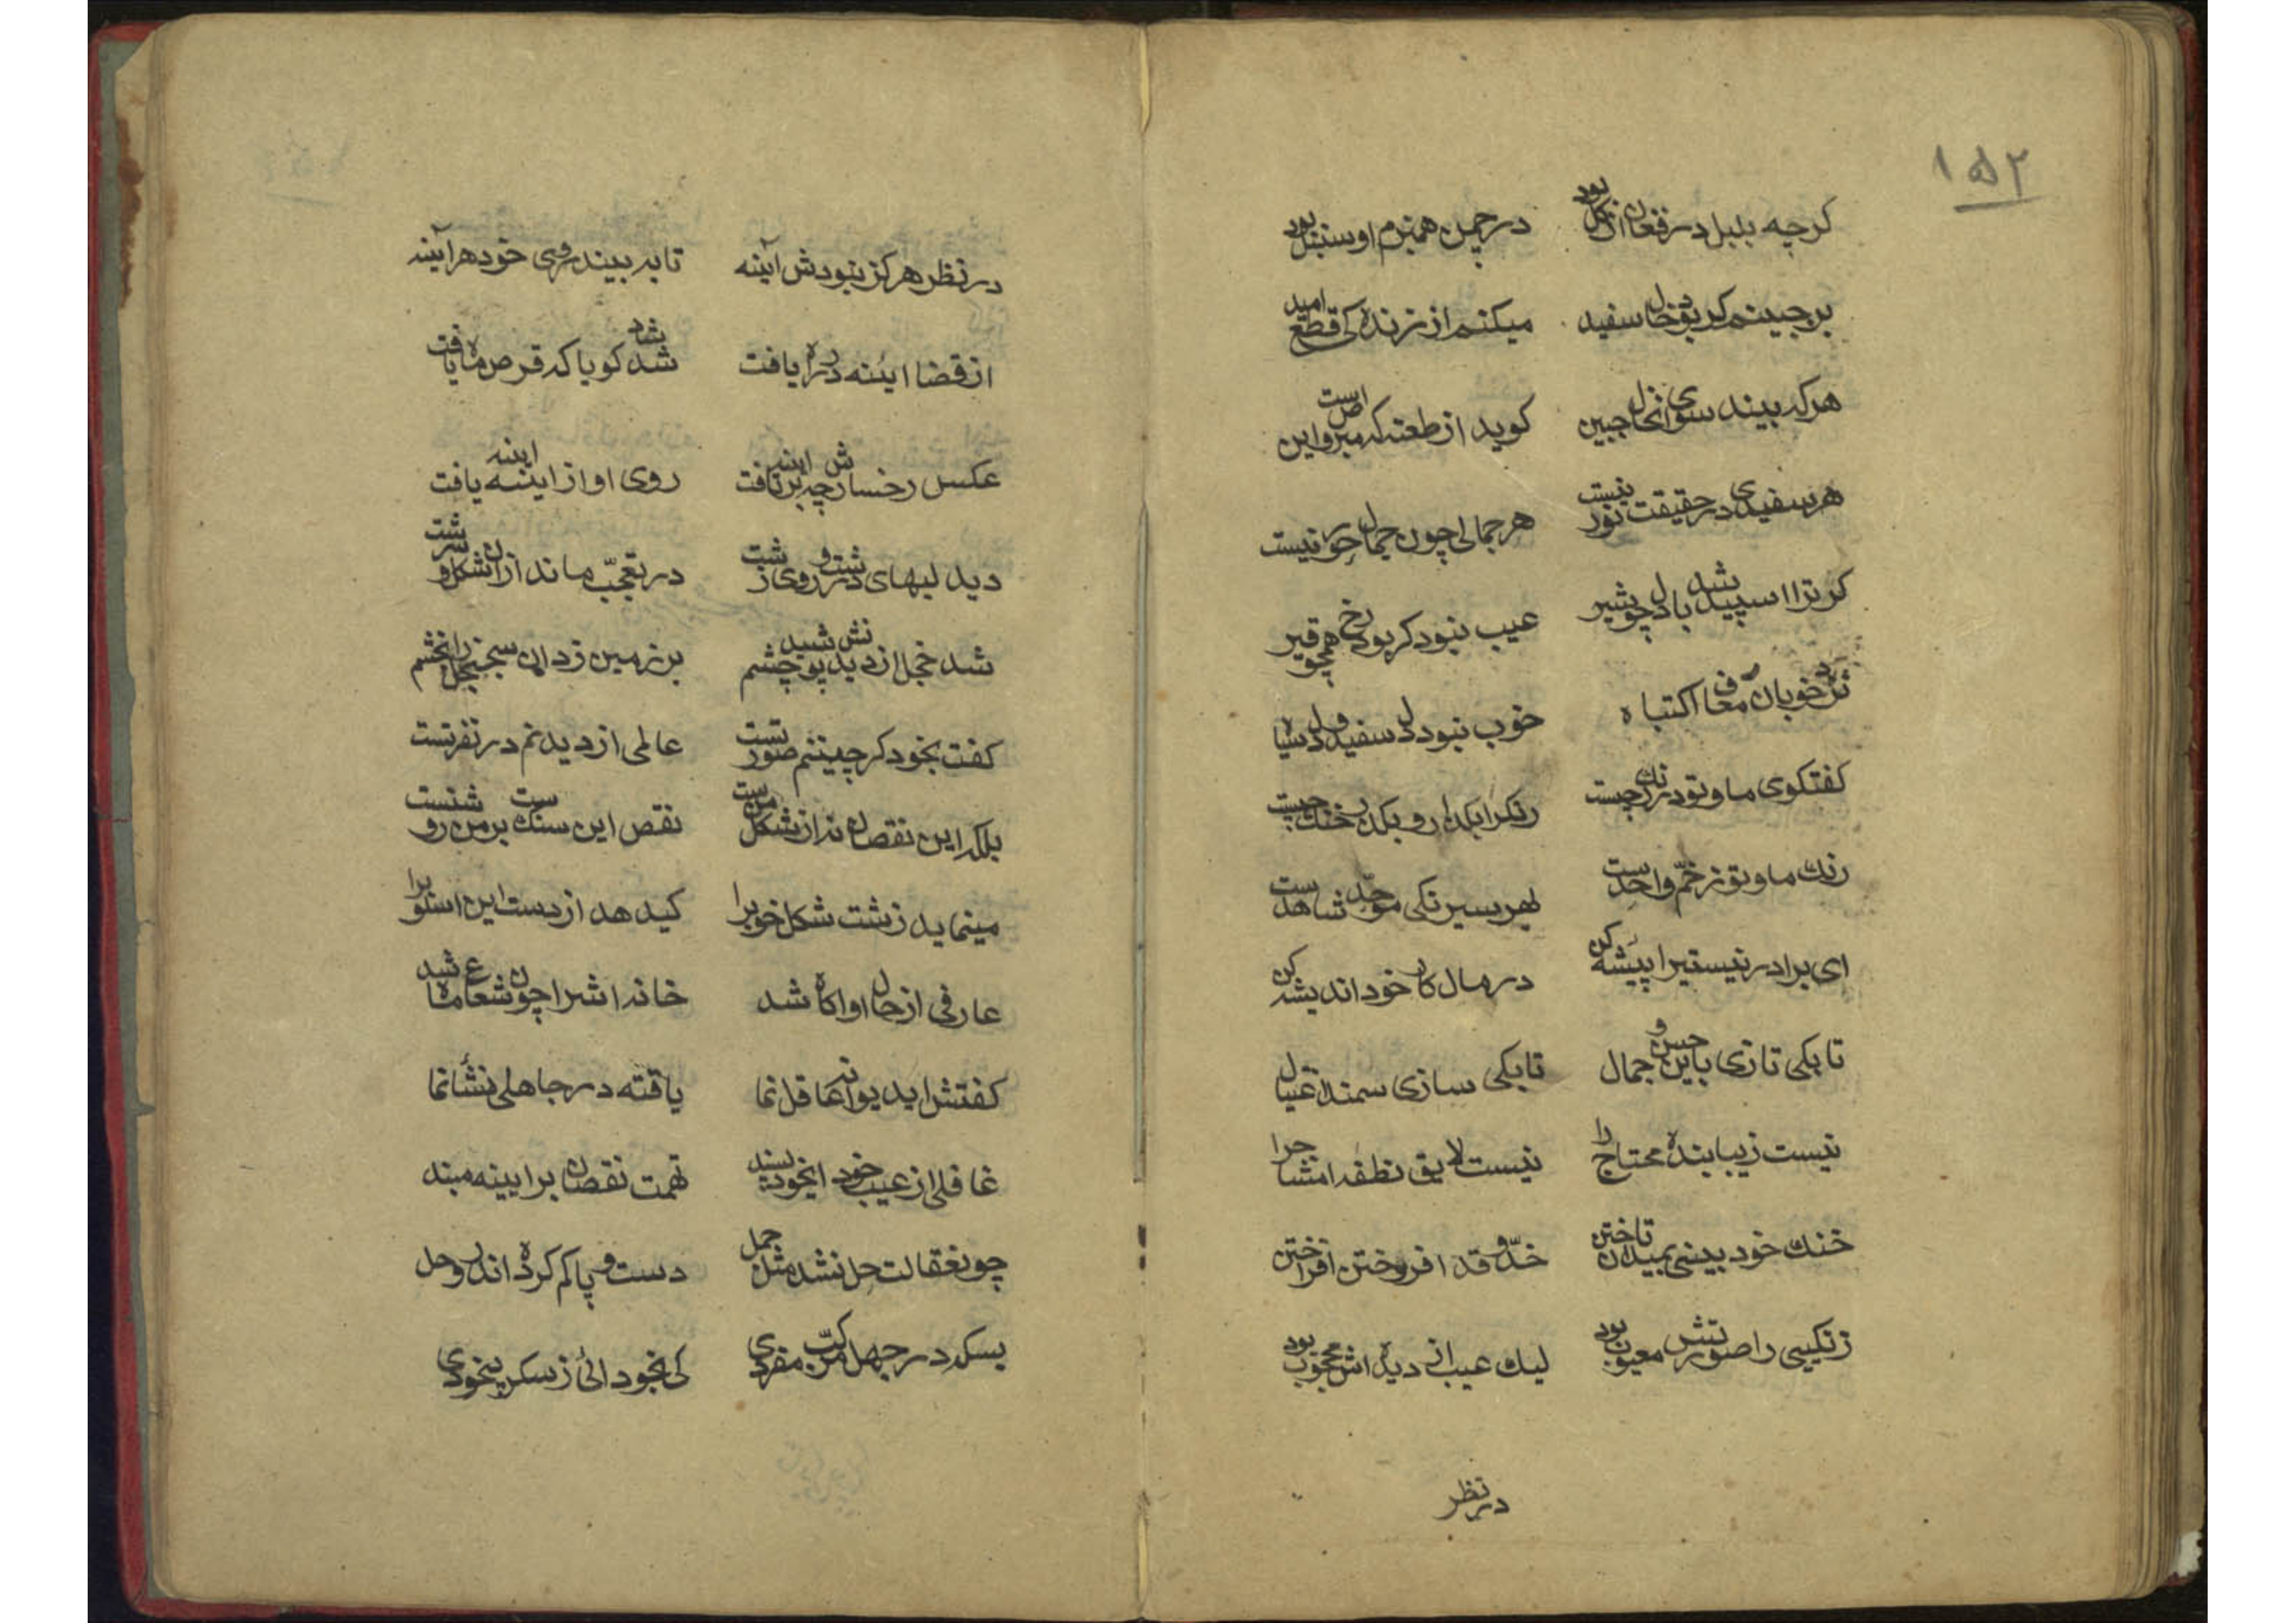 ۱۵۲
کرچه بلبل در فغان از کل بود در چمن همبزم او سنبل بود
بر جبینم کر بود خال سفید میکنم از زندکی قطع امید
هر که بیند سوی آنخال جبین کوید از طعنه که مبروص است این
هر سفیدی در حقیقت نور نیست هر جمالی چون جمال حور نیست
کر ترا اسپید شد دل چو شیر عیب نبود کر بود رخ همچو قیر
نزد خوبان معاف اکتباه خوب نبود دل سفید و دل سیاه
کفتکوی ما و تو در رنك چیست رنکرا بکذار و بکذر خنك چیست
رنك ما و تو ز خمّ واحدست بهر سیرنکی موحّد شاهدست
ای برادر نیستیرا پیشه کن در مال کار خود اندیشه کن
تا بکی تازی باین حسن و جمال تا بکی سازی سمند اغتیال
نیست زیبا بنده محتاج را نیست لایق نطفه امشاج را
خنك خود بینی بمیدان تاختن خدّ و قد افروختن افراختن
زنکیی را صورتش معیوب بود لیك عیب از دیده اش محجوب بود
در نظر
در نظر هرکز نبودش آینه تا به بیند روی خود هر آینه
از قضا اینه در راه یافت شاد شد کویا که قرص ماه یافت
عکس رخسارش چه بر اینه تافت روی او از اینه اینه یافت
دید لبهای درشت و روی زشت در تعجّب ماند از ان شکل و سرشت
شد خجل از دیدنش پوشید چشم بر زمین زد ان سجنجل را بخشم
کفت بخود کر چینم صورتست عالمی از دیدنم در نفرتست
بلکه این نقصان نه از شکل منست نقص این سنکست بر من روشنست
مینماید زشت شکل خوبرا کید هد از دست این اسلوبرا
عارفی از حال او اکاه شد خانه اشرا چون شعاع ماه شد
کفتش اید یوانه عاقل نما یافته در جاهلی نشأ نما
غافلی از عیب خود ایخود پسند تهمت نقصان بر ایینه مبند
چو نعقالت حل نشد مثل جمل دست و پا کم کرده اندر وحل
بسکه در جهل مرکّب مفردی کی بخود ائی ز سکر بیخودی